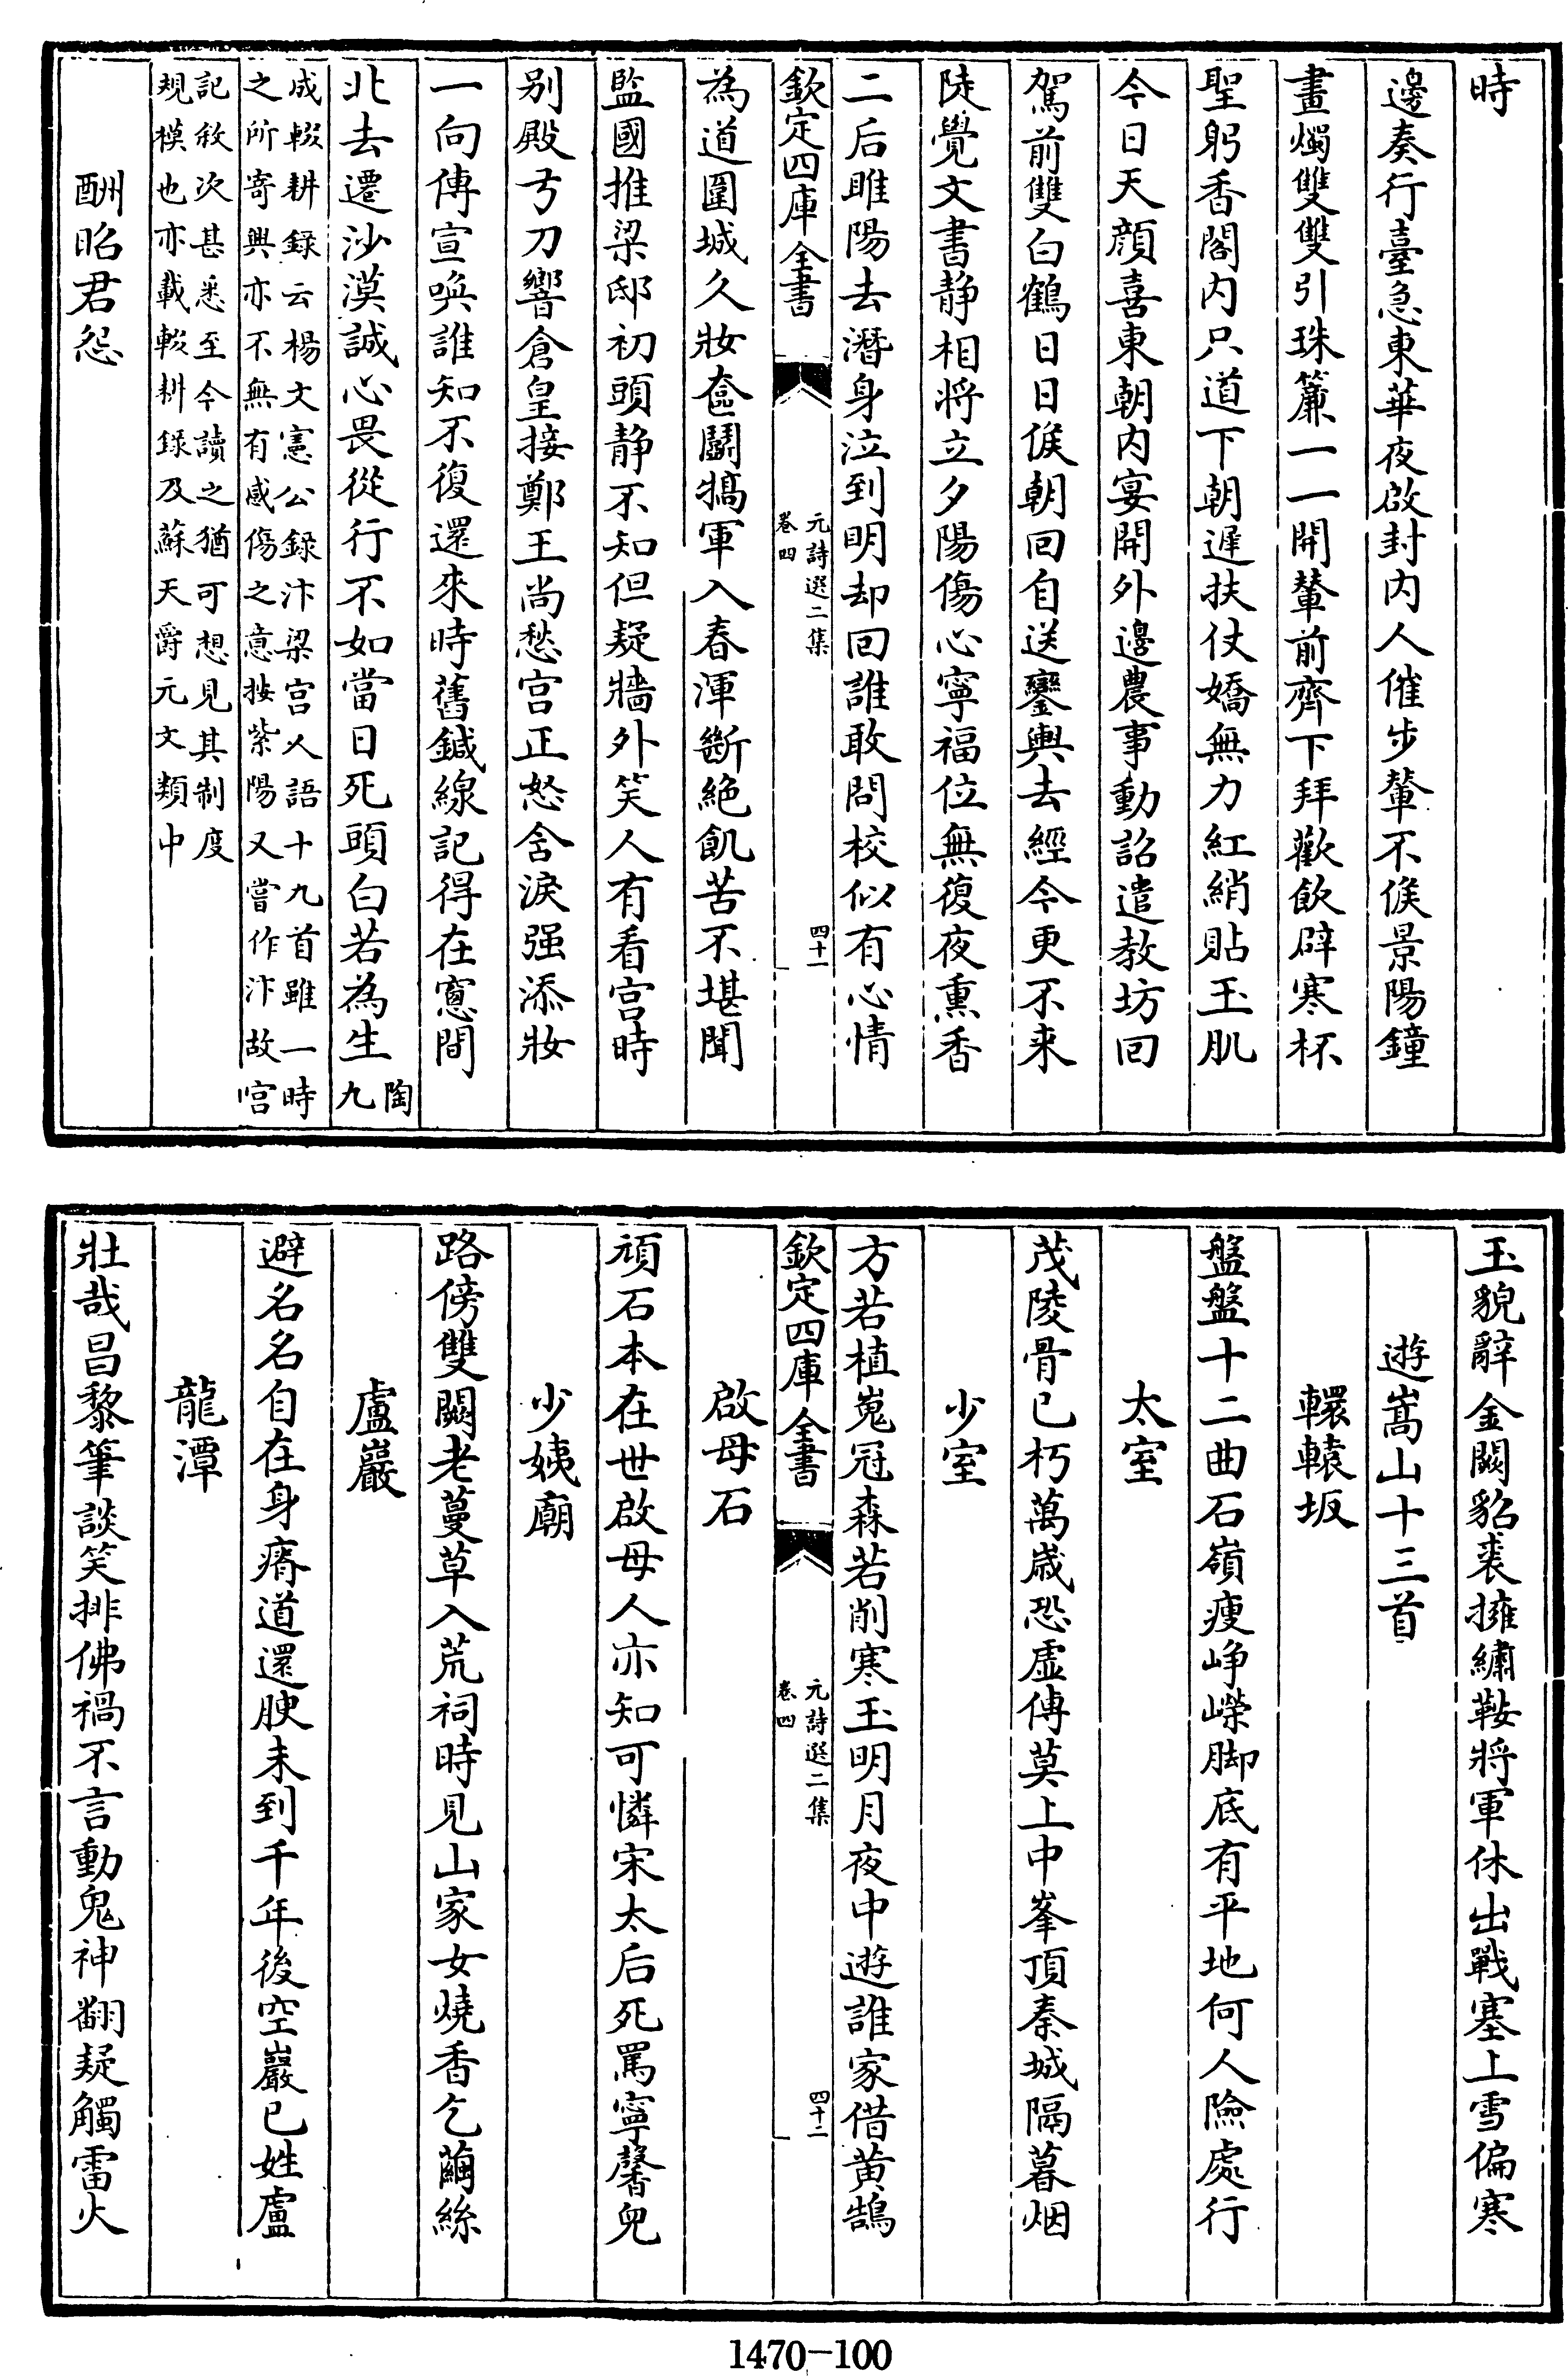 時
邊奏行臺急東華夜啟封内人催步輦不俟景陽鐘
畫燭雙雙引珠簾一一開輦前齊下拜歡飲辟寒杯
聖躬香閣内只道下朝遲扶仗嬌無力紅綃貼玉肌
今日天顔喜東朝内宴開外邊農事動詔遣教坊回
駕前雙白鶴日日俟朝回自送鑾輿去經今更不来
陡覺文書静相將立夕陽傷心寧福位無復夜熏香
二后睢陽去潛身泣到明却回誰敢問校似有心情
欽定四庫全書
元詩選二集
卷四
四十一
為道圍城久妝奩鬭犒軍入春渾斷絶飢苦不堪聞
監國推梁邸初頭静不知但疑牆外笑人有看宫時
别殿弓刀響倉皇接鄭王尚愁宫正怒含淚强添妝
一向傳宣喚誰知不復還來時舊鍼線記得在窗間
北去遷沙漠誠心畏從行不如當日死頭白若為生陶九
成輟耕録云楊文憲公録汴梁宫人語十九首雖一時
之所寄興亦不無有感傷之意按紫陽又嘗作汴故宫
記敘次甚悉至今讀之猶可想見其制度
規模也亦載輟耕録及蘇天爵元文類中
酬昭君怨
玉貌辭金闕貂裘擁繡鞍將軍休出戰塞上雪偏寒
遊嵩山十三首
轘轅坂
盤盤十二曲石嶺瘦崢嶸脚底有平地何人險處行
太室
茂陵骨已朽萬歲恐虚傳莫上中峯頂秦城隔暮烟
少室
方若植嵬冠森若削寒玉明月夜中遊誰家借黄鵠
欽定四庫全書
元詩選二集
卷四
四十二
啟母石
頑石本在世啟母人亦知可憐宋太后死罵寧馨兒
少姨廟
路傍雙闕老蔓草入荒祠時見山家女燒香乞繭絲
盧巖
避名名自在身瘠道還腴未到千年後空巖已姓盧
龍潭
壯哉昌黎筆談笑排佛禍不言動鬼神翻疑觸雷火
1470-100